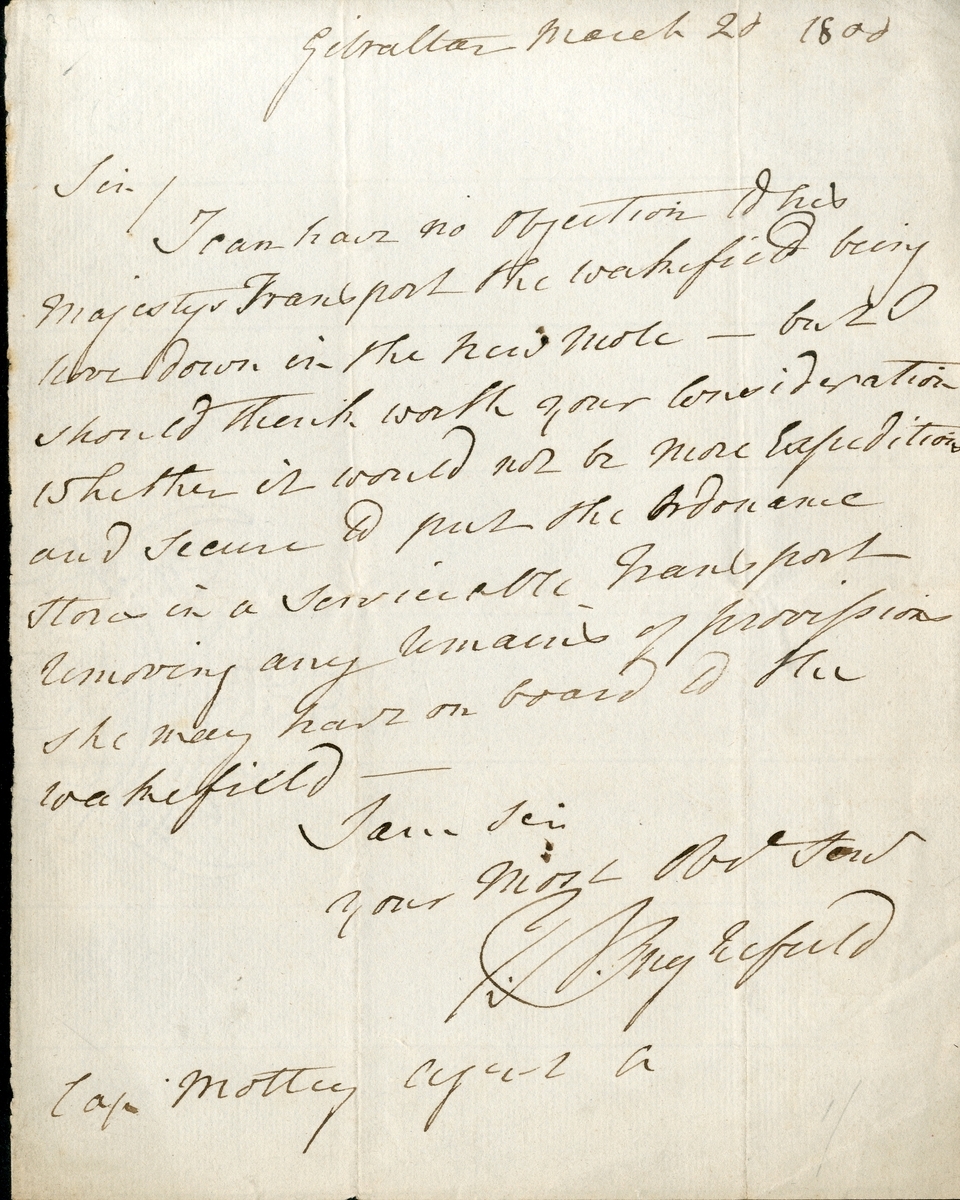 Gibraltar March 2d 1800
Sir/
I can have no Objection to his
Majestys Transport the wakefield being
hove down in the new Mole — but I
should think worth your Consideration
whether it would not be more Expeditious
and Secure to put the Ordonance
Stores in a Serviceable Transport
removing any remains of provisions
she may have on board to the
wakefield —
I am Sir
your Most Obdt Servt
Inglefield
Cap Mottley agent &